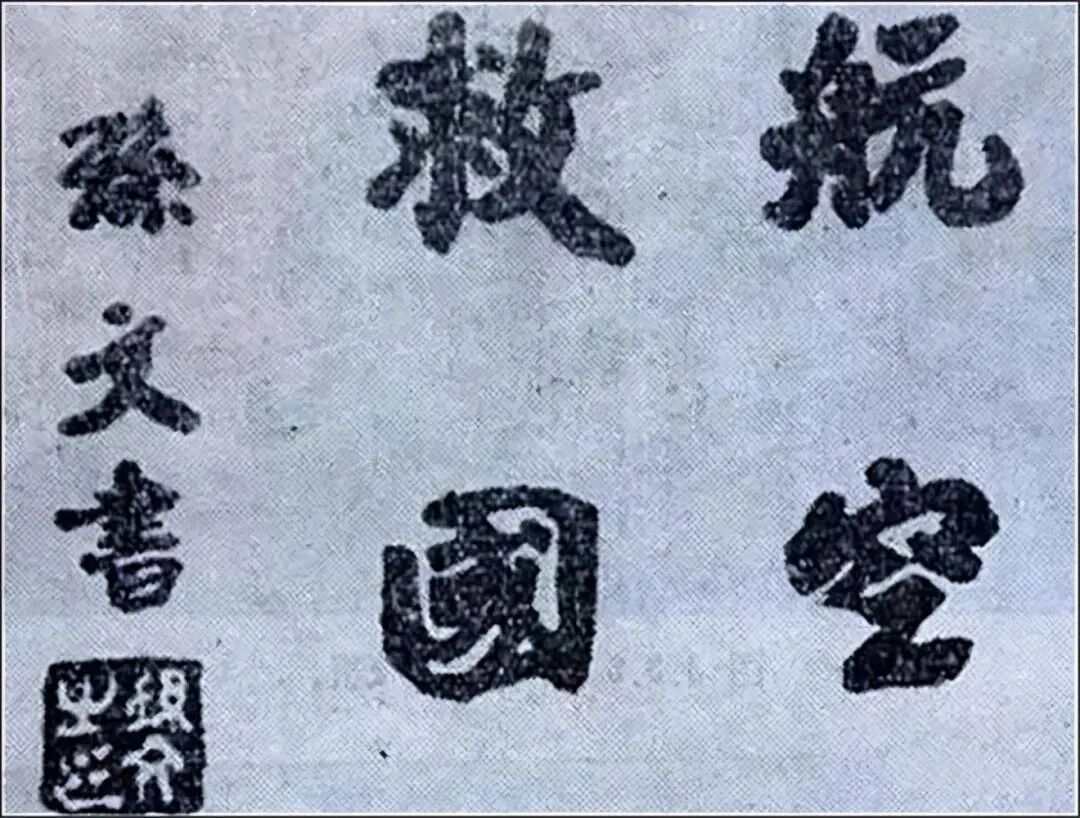 航空
救國
孫文書
孫文之印